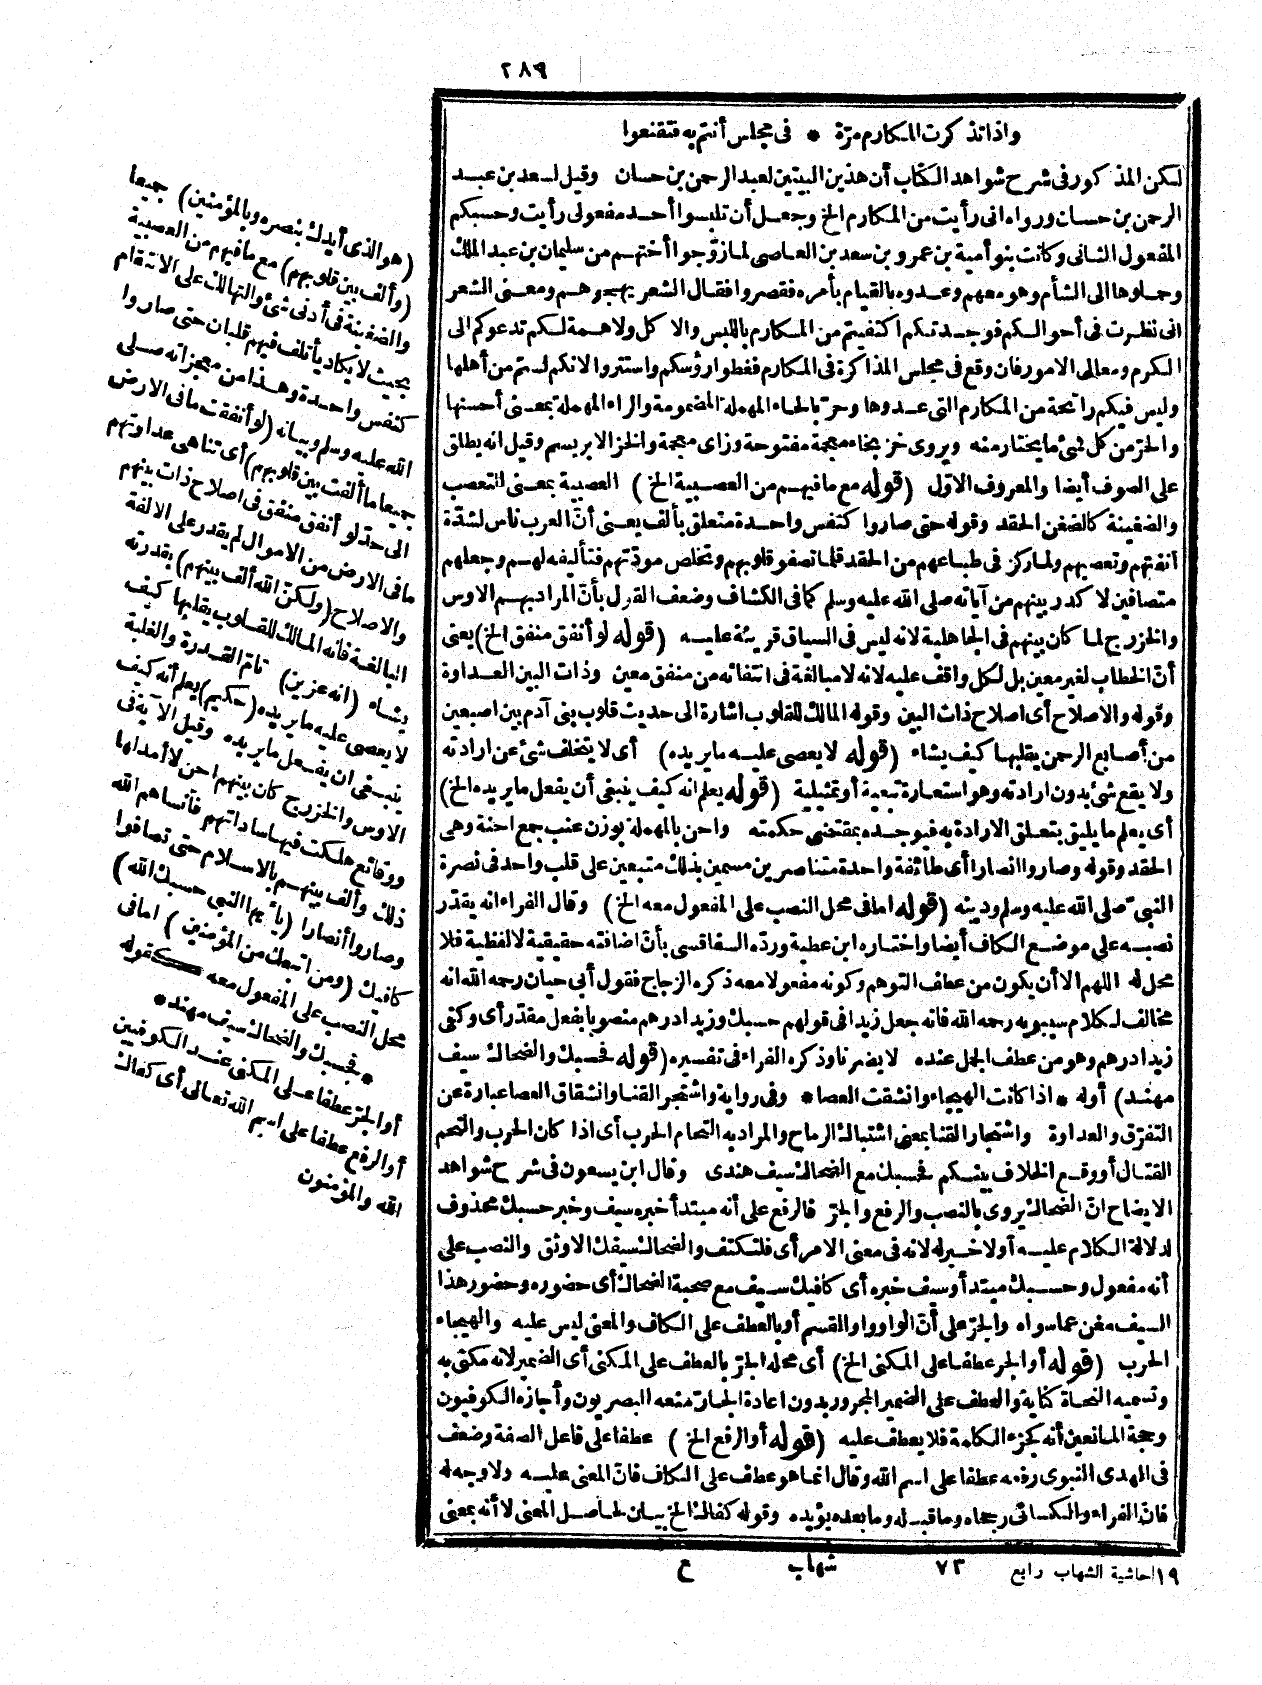 ٢٨٩
واذا تذكرت المكارم مرّة * فى مجلس أنتم به فتقنعوا
لكن المذكور فى شرح شواهد الكتاب أن هذين البيتين لعبد الرحمن بن حسان وقيل لسعد بن عبد
الرحمن بن حسان ورواه انى رأيت من المكارم الخ وجعل أن تلبسوا أحد مفعولى رأيت وحسبكم
المفعول الثانى وكانت بنو أمية بن عمرو بن سعد بن العاصى لما زوّجوا أختهم من سليمان بن عبد الملك
وحملوها الى الشأم وهو معهم وعدوه بالقيام بأمره فقصروا فقال الشعر يهجوهم ومعنى الشعر
انى نظرت فى أحوالكم فوجدتكم اكتفيتم من المكارم باللبس والاكل ولا همة لكم تدعوكم الى
الكرم ومعالى الامور فان وقع فى مجلس المذاكرة فى المكارم فغطوا رؤسكم واستتروا لانكم لستم من أهلها
وليس فيكم رائحة من المكارم التى عدوها وحرّ بالحاء المهملة المضمومة والراء المهملة بمعنى أحسنها
والحرّ من كل شئ ما يختار منه ويروى خز بخاء معجمة مفتوحة وزاى معجمة والخز الابريسم وقيل انه يطلق
على الصوف أيضا والمعروف الاوّل (قوله مع ما فيهم من العصبية الخ) العصبية بمعنى التعصب
والضغينة كالضغن الحقد وقوله حتى صاروا كنفس واحدة متعلق بألف يعنى أنّ العرب ناس لشدّة
أنفتهم وتعصبهم ولما ركز فى طباعهم من الحقد قلما تصفو قلوبهم وتخلص مودّتهم فتأليفه لهم وجعلهم
متصافين لا كدر بينهم من آياته صلى الله عليه وسلم كما فى الكشاف وضعف القول بأنّ المراد بهم الاوس
والخزرج لما كان بينهم فى الجاهلية لانه ليس فى السياق قرينة عليه (قوله لو أنفق منفق الخ) يعنى
أنّ الخطاب لغير معين بل لكل واقف عليه لانه لا مبالغة فى انتفائه من منفق معين وذات البين العداوة
وقوله والاصلاح أى اصلاح ذات البين وقوله المالك للقلوب اشارة الى حديث قلوب بنى آدم بين اصبعين
من أصابع الرحمن يقلبها كيف يشاء (قوله لا يعصى عليه ما يريده) أى لا يتخلف شئ عن ارادته
ولا يقع شئ بدون ارادته وهو استعارة تبعية أو تمثيلية (قوله يعلم انه كيف ينبغى أن يفعل ما يريده الخ)
أى يعلم ما يليق بتعلق الارادة به فيوجده بمقتضى حكمته واحن بالمهملة بوزن عنب جمع احنة وهى
الحقد وقوله وصاروا انصارا أى طائفة واحدة متناصرين مسمين بذلك متبعين على قلب واحد فى نصرة
النبى صلى الله عليه وسلم ودينه (قوله اما فى محل النصب على المفعول معه الخ) وقال الفراء انه يقدّر
نصبه على موضع الكاف أيضا واختاره ابن عطية وردّه السفاقسى بأنّ اضافته حقيقية لا لفظية فلا
محل له اللهم الا أن يكون من عطف التوهم وكونه مفعولا معه ذكره الزجاج فقول أبى حيان رحمه الله انه
مخالف لكلام سيبويه رحمه الله فانه جعل زيدا فى قولهم حسبك وزيدا درهم منصوبا بفعل مقدّر أى وكفى
زيدا درهم وهو من عطف الجمل عنده لا يضرنا وذكره الفراء فى تفسيره (قوله فحسبك والضحاك سيف
مهند) أوله * اذا كانت الهيجاء وانشقت العصا * وفى رواية واشتجر القنا وانشقاق العصا عبارة عن
التفرّق والعداوة واشتجار القنا بمعنى اشتباك الرماح والمراد به التحام الحرب أى اذا كان الحرب والتحم
القتال أو وقع الخلاف بينكم فحسبك مع الضحاك سيف هندى وقال ابن يسعون فى شرح شواهد
الايضاح انّ الضحاك يروى بالنصب والرفع والجرّ فالرفع على أنه مبتدأ خبره سيف وخبر حسبك محذوف
لدلالة الكلام عليه أو لا خبر له لانه فى معنى الامر أى فلتكتف والضحاك سيفك الاوثق والنصب على
أنه مفعول وحسبك مبتدأ وسيف خبره أى كافيك سيف مع صحبة الضحاك أى حضوره وحضور هذا
السيف مغن عما سواه والجرّ على أنّ الواو واو القسم أو بالعطف على الكاف والمعنى ليس عليه والهيجاء
الحرب (قوله أو الجر عطفا على المكنى الخ) أى محله الجرّ بالعطف على المكنى أى الضمير لانه مكنى به
وتسميه النحاة كناية والعطف على الضمير المجرور بدون اعادة الجارّ منعه البصريون وأجازه الكوفيون
وحجة المانعين أنه كجزء الكلمة فلا يعطف عليه (قوله أو الرفع الخ) عطفا على فاعل الصفة وضعف
فى الهدى النبوى رفعه عطفا على اسم الله وقال انما هو عطف على الكاف فانّ المعنى عليه ولا وجه له
فانّ الفراء والكسائى رجحاه وما قبله وما بعده يؤيده وقوله كفاك الخ بيان لحاصل المعنى لا أنه بمعنى
١٩ احاشية الشهاب رابع ٧٣ شهاب ع
(هو الذى أيدك بنصره وبالمؤمنين) جميعا
(وألف بين قلوبهم) مع ما فيهم من العصبية
والضغينة فى أدنى شئ والتهالك على الانتقام
بحيث لا يكاد يأتلف فيهم قلبان حتى صاروا
كنفس واحدة وهذا من معجزاته صلى
الله عليه وسلم وبيانه (لو أنفقت ما فى الارض
جميعا ما ألفت بين قلوبهم) أى تناهى عداوتهم
الى حدّ لو أنفق منفق فى اصلاح ذات بينهم
ما فى الارض من الاموال لم يقدر على الالفة
والاصلاح (ولكنّ الله ألف بينهم) بقدرته
البالغة فانه المالك للقلوب يقلبها كيف
يشاء (انه عزيز) تامّ القدرة والغلبة
لا يعصى عليه ما يريده (حكيم) يعلم أنه كيف
ينبغى ان يفعل ما يريده وقيل الآية فى
الاوس والخزرج كان بينهم احن لا أمد لها
ووقائع هلكت فيها ساداتهم فأنساهم الله
ذلك وألف بينهم بالاسلام حتى تصافوا
وصاروا أنصارا (يا أيها النبى حسبك الله)
كافيك (ومن اتبعك من المؤمنين) اما فى
محل النصب على المفعول معه كقوله
* فحسبك والضحاك سيف مهند *
أو الجرّ عطفا على المكنى عند الكوفيين
أو الرفع عطفا على اسم الله تعالى أى كفاك
الله والمؤمنون